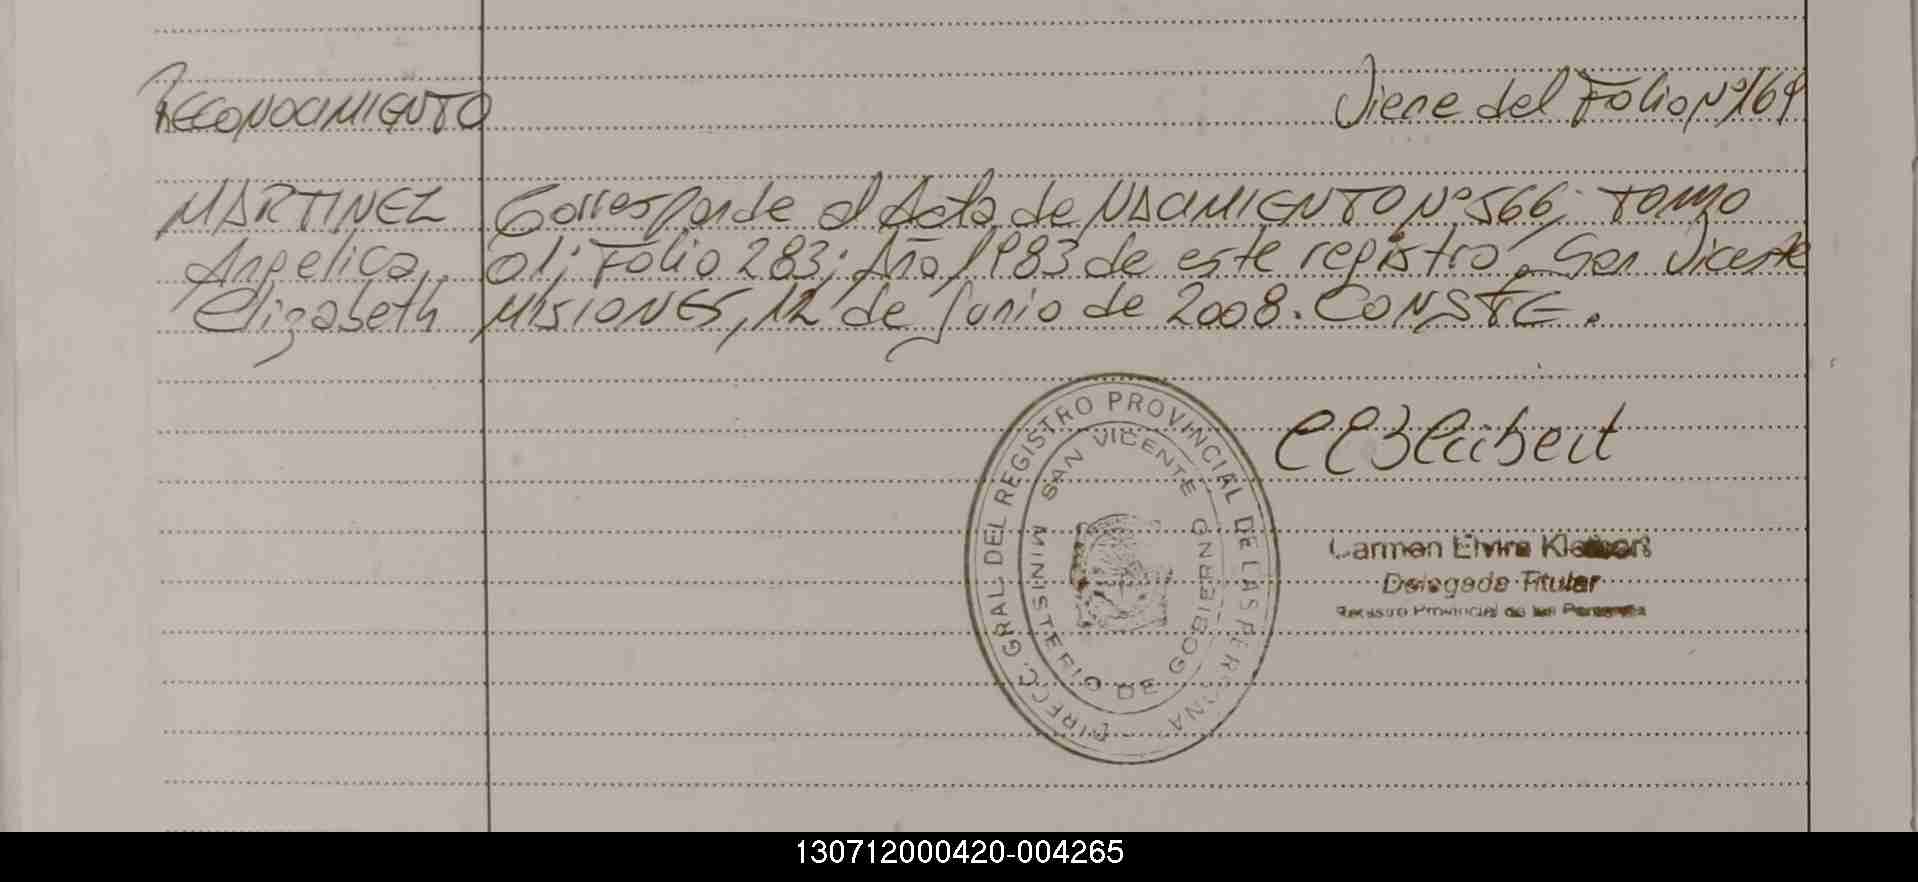 RECONOCIMIENTO
Viene del Folio Nº 169
MARTINEZ
Angelica
Elizabeth
Corresponde al Acta de NACIMIENTO Nº 566; TOMO
01; Folio 283; Año 1983 de este registro. San Vicente
MISIONES, 12 de Junio de 2008. CONSTE.
DIRECC. GRAL DEL REGISTRO PROVINCIAL DE LAS PERSONA
SAN VICENTE
MINISTERIO DE GOBIERNO
Carmen Elvira
Delegada Titular
Registro Provincial de las Personas
130712000420-004265